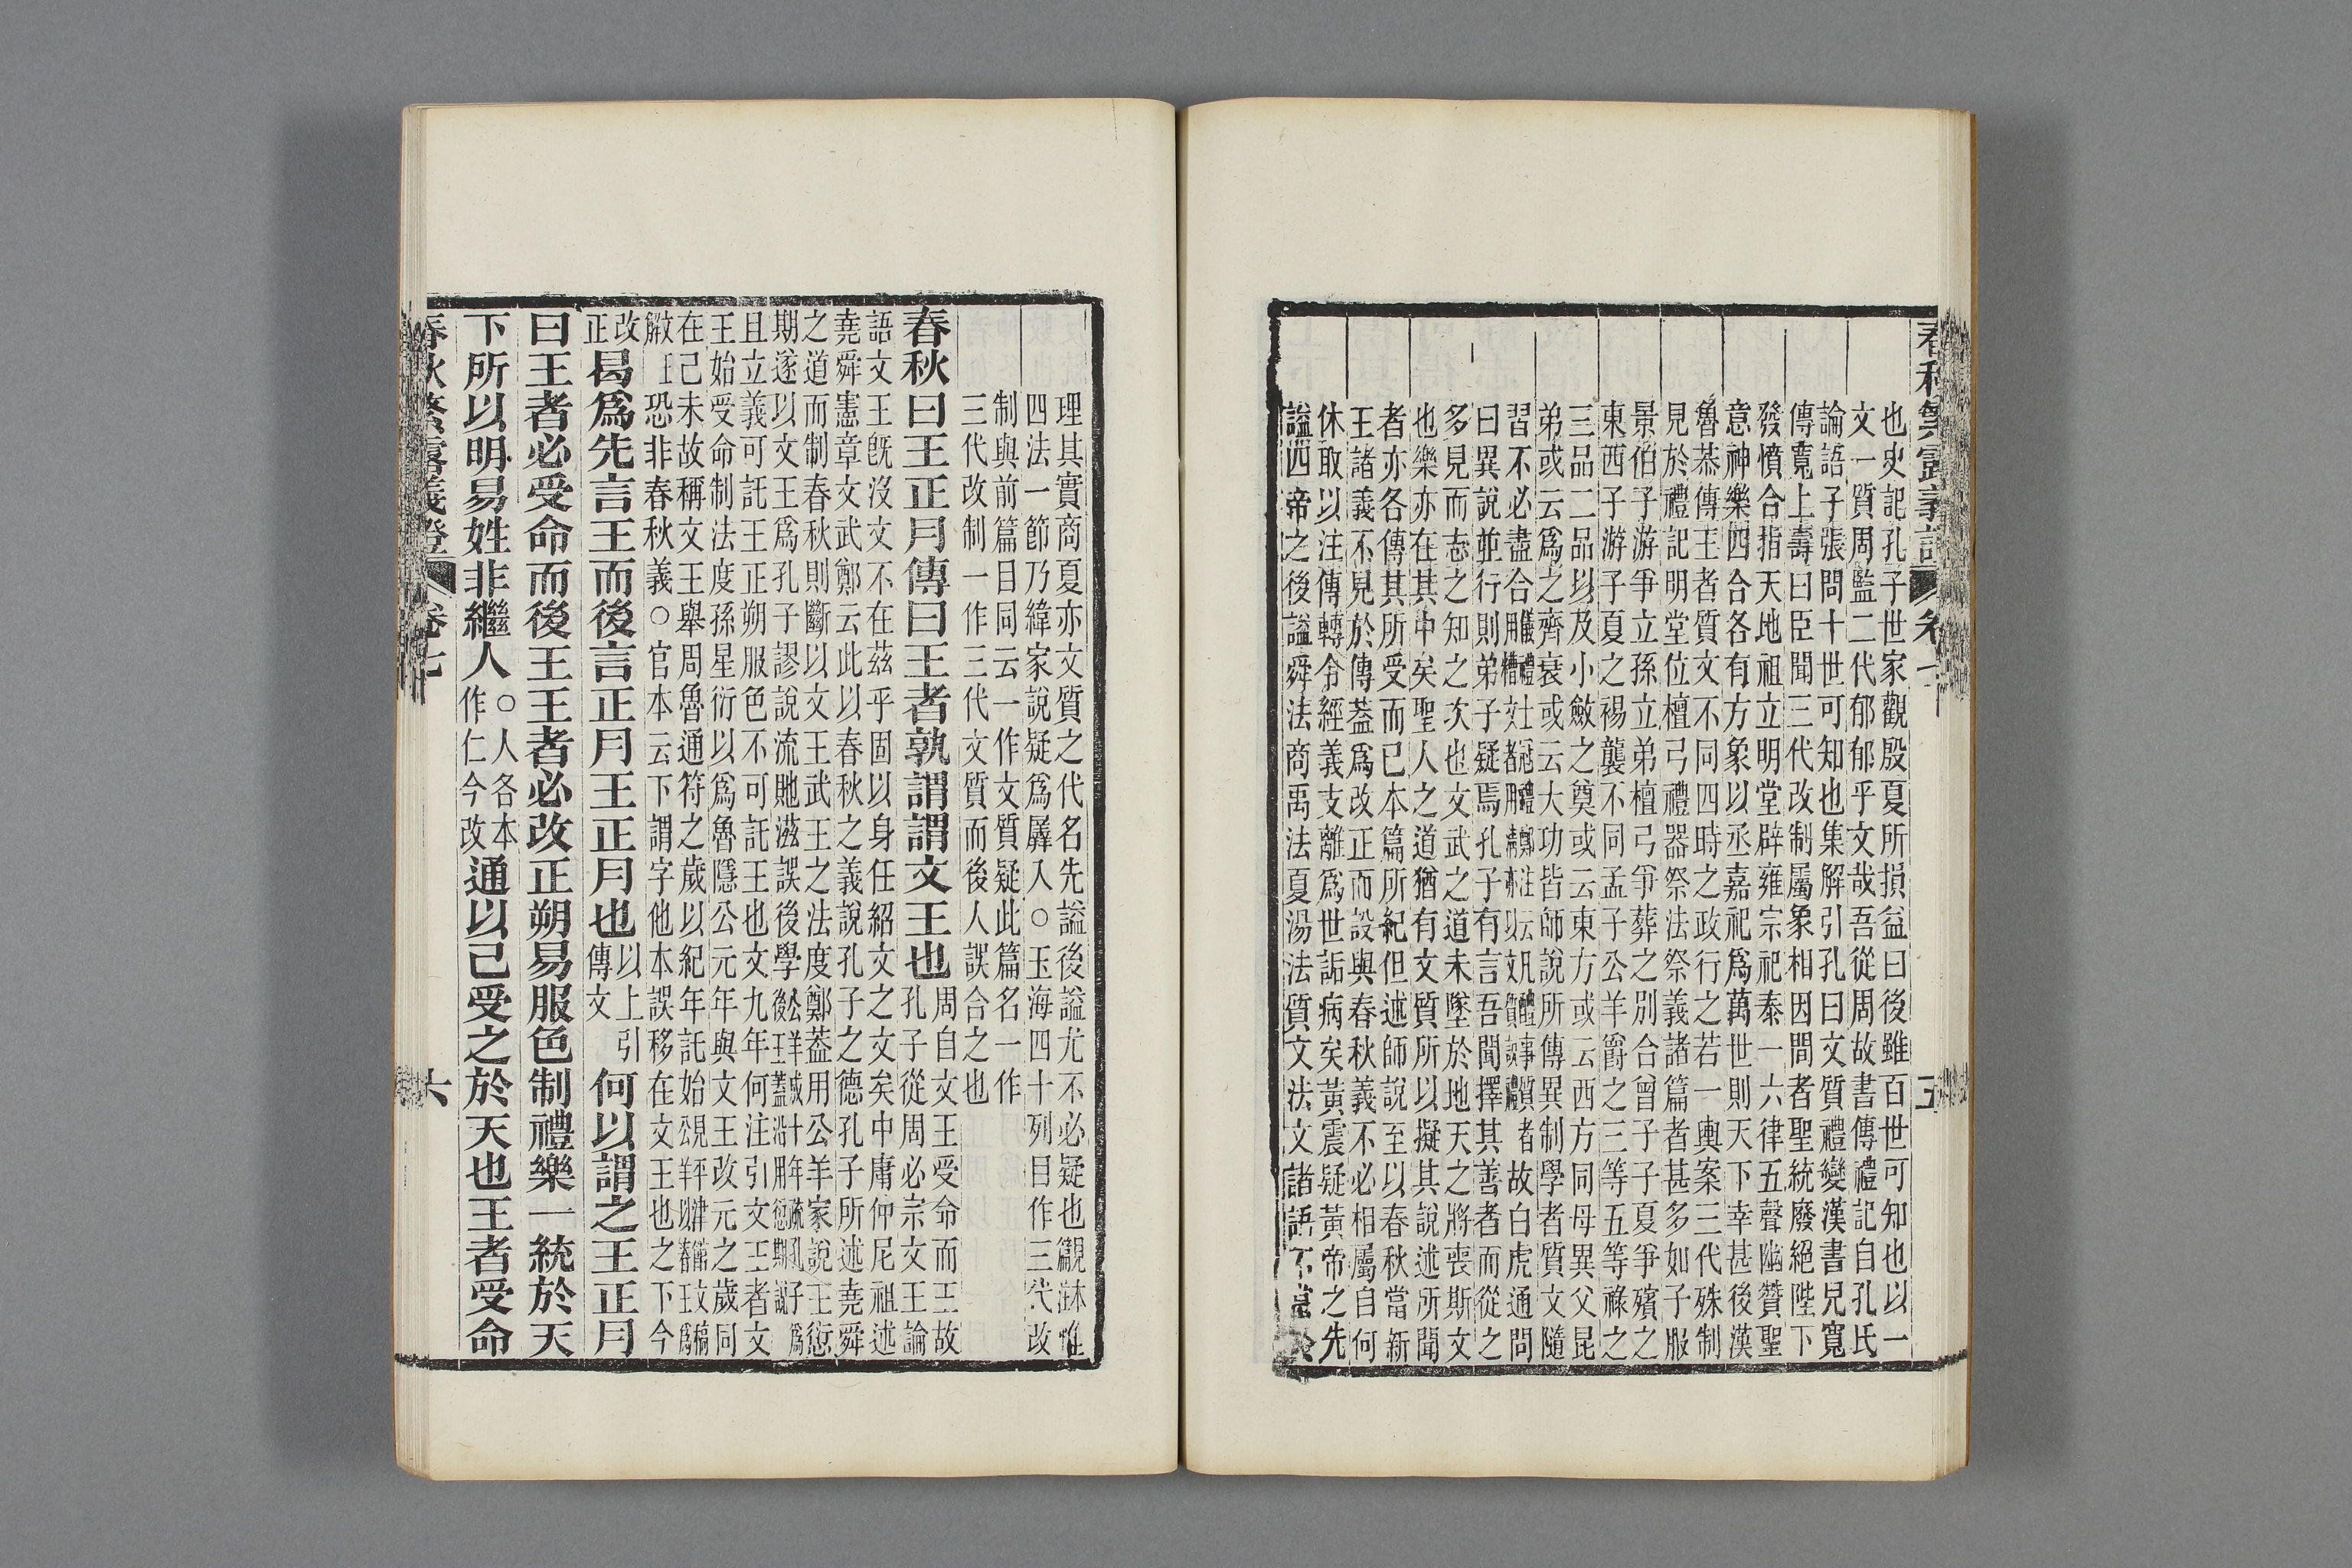 春秋繁露義證 卷七 五
也史記孔子世家觀殷夏所損益曰後雖百世可知也以一
文一質周監二代郁郁乎文哉吾從周故書傳禮記自孔氏
論語子張問十世可知也集解引孔曰文質禮變漢書兒寬
傳寬上壽曰臣聞三代改制屬象相因間者聖統廢絕陛下
發憤合指天地祖立明堂辟雍宗祀泰一六律五聲幽贊聖
意神樂四合各有方象以丞嘉祀爲萬世則天下幸甚後漢
魯恭傳王者質文不同四時之政行之若一輿案三代殊制
見於禮記明堂位檀弓禮器祭法祭義諸篇者甚多如子服
景伯子游爭立孫立弟檀弓爭葬之別合曾子子夏爭殯之
東西子游子夏之裼襲不同孟子公羊爵之三等五等祿之
三品二品以及小斂之奠或云東方或云西方同母異父昆
弟或云爲之齊衰或云大功皆師說所傳異制學者質文隨
習不必盡合者故白虎通問
曰異說並行則弟子疑焉孔子有言吾聞擇其善者而從之
多見而志之知之次也文武之道未墜於地天之將喪斯文
也樂亦在其中矣聖人之道猶有文質所以擬其說述所聞
者亦各傳其所受而已本篇所紀但述師說至以春秋當新
王諸義不見於傳葢爲改正而設與春秋義不必相屬自何
休取以注傳轉令經義支離爲世詬病矣黃震疑黃帝之先
謚四帝之後謚舜法商禹法夏湯法質文法文諸語不當於
理其實商夏亦文質之代名先謚後謚尤不必疑也觀本注惟
四法一節乃緯家說疑爲羼入○玉海四十列目作三代改
制與前篇目同云一作文質疑此篇名一作
三代改制一作三代文質而後人誤合之也
春秋曰王正月傳曰王者孰謂謂文王也周自文王受命而王故
孔子從周必宗文王論
語文王旣沒文不在茲乎固以身任紹文之文矣中庸仲尼祖述
堯舜憲章文武鄭云此以春秋之義說孔子之德孔子所述堯舜
之道而制春秋則斷以文王武王之法度鄭葢用公羊家說王愆
期遂以文王爲孔子謬說流貤滋誤後學
且立義可託王正朔服色不可託王也文九年何注引文王者文
王始受命制法度孫星衍以爲魯隱公元年與文王改元之歲同
在己未故稱文王舉周魯通符之歲以紀年託始
厰王恐非春秋義○官本云下謂字他本誤移在文王也之下今
改
正曷爲先言王而後言正月王正月也以上引
傳文何以謂之王正月
曰王者必受命而後王王者必改正朔易服色制禮樂一統於天
下所以明易姓非繼人○人各本
作仁今改通以己受之於天也王者受命
春秋繁露義證 卷七 六